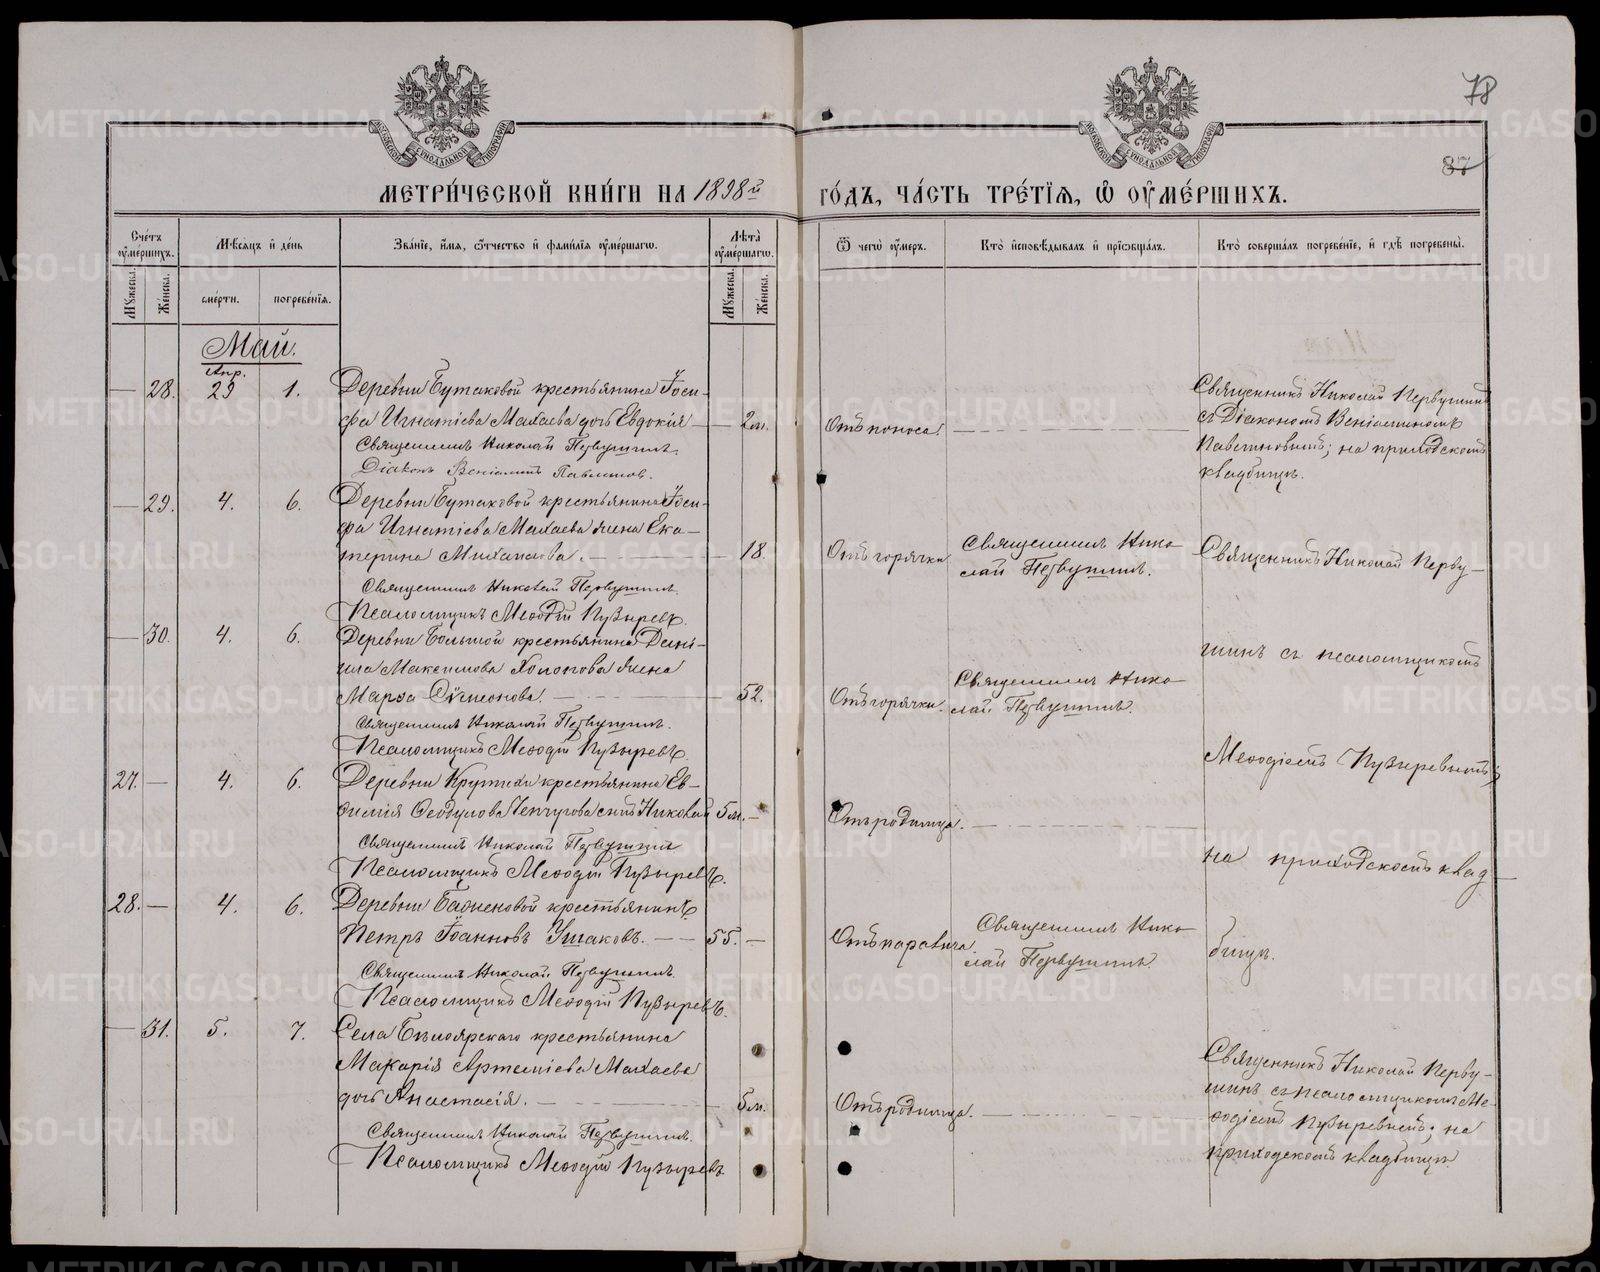 78
87
МОСКОВСКОЙ СѴНОДАЛЬНОЙ ТИПОГРАФІИ
МОСКОВСКОЙ СѴНОДАЛЬНОЙ ТИПОГРАФІИ
МЕТРИ́ЧЕСКОЙ КНИ́ГИ НА 1898й
ГО́ДЪ, ЧА́СТЬ ТРЕ́ТІѦ, Ѡ҆ ОУ҆МЕ́РШИХЪ.
Сче́тъ оу҆ме́ршихъ.
Мꙋжеска.
Же́нска.
Мѣ́сяцъ и҆ де́нь
сме́рти.
погребе́нїя.
Зва́нїе, и҆́мя, ѻ҆́тчество и҆ фами́лїя оу҆ме́ршагѡ.
Лѣ́та оу҆ме́ршагѡ.
Мꙋжеска.
Же́нска.
Ѿ чегѡ̀ оу҆́меръ.
Кто̀ и҆сповѣ́дывалъ и҆ прїѻбща́лъ.
Кто̀ соверша́лъ погребе́нїе, и҆ гдѣ̀ погребены̀.
Май.
Апр.
— 28. 29 1. Деревни Бутаковой крестьянина Іоси-
фа Игнатіева Малаева дочь Евдокія — 2 м.
Священникъ Николай Первушинъ.
Діаконъ Веніаминъ Павлиновъ.
Отъ поноса. —
Священникъ Николай Первушинъ
съ Діакономъ Веніаминомъ
Павлиновымъ; на приходскомъ
кладбищѣ.
— 29. 4. 6. Деревни Бутаковой крестьянина Іоси-
фа Игнатіева Малаева жена Ека-
терина Михаилова. — 18.
Священникъ Николай Первушинъ.
Псаломщикъ Меѳодій Пузыревъ.
Отъ горячки
Священникъ Нико-
лай Первушинъ.
Священникъ Николай Перву-
— 30. 4. 6. Деревни Большой крестьянина Дані-
ила Максимова Холопова жена
Марѳа Сѵмеонова. — 52.
Священникъ Николай Первушинъ.
Псаломщикъ Меѳодій Пузыревъ.
Отъ горячки.
Священникъ Нико-
лай Первушинъ.
шинъ съ псаломщикомъ
Меѳодіемъ Пузыревымъ;
27. — 4. 6. Деревни Крутихи крестьянина Ев-
ѳимія Ѳеодулова Ченчугова сынъ Николай 5 м. —
Священникъ Николай Первушинъ
Псаломщикъ Меѳодій Пузыревъ.
Отъ родимца. —
на приходскомъ клад-
28. — 4. 6. Деревни Баженовой крестьянинъ
Петръ Іоанновъ Ушаковъ. — 55. —
Священникъ Николай Первушинъ.
Псаломщикъ Меѳодій Пузыревъ.
Отъ паралича.
Священникъ Нико-
лай Первушинъ.
бищѣ.
— 31. 5. 7. Села Бѣлоярскаго крестьянина
Макарія Артеміева Малаева
дочь Анастасія. — 5 м.
Священникъ Николай Первушинъ.
Псаломщикъ Меѳодій Пузыревъ.
Отъ родимца. —
Священникъ Николай Перву-
шинъ съ псаломщикомъ Ме-
ѳодіемъ Пузыревымъ; на
приходскомъ кладбищѣ.
METRIKI.GASO-URAL.RU